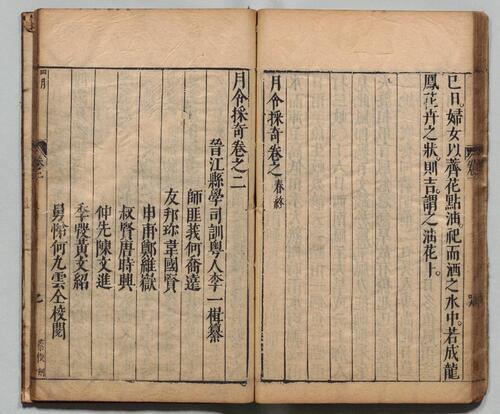 巳日。婦女以薺花點油。祀而洒之水中。若成龍
鳳花卉之狀。則吉。謂之油花卜。
月令採奇卷之春終
月令採奇卷之二
晉江縣學司訓粵人李一楫纂
師匪莪何喬遠
友邦珍韋國賢
申甫鄭維嶽
叔賢唐時興
仲先陳文進
黃文紹
何九雲仝校閱
四月
卷二